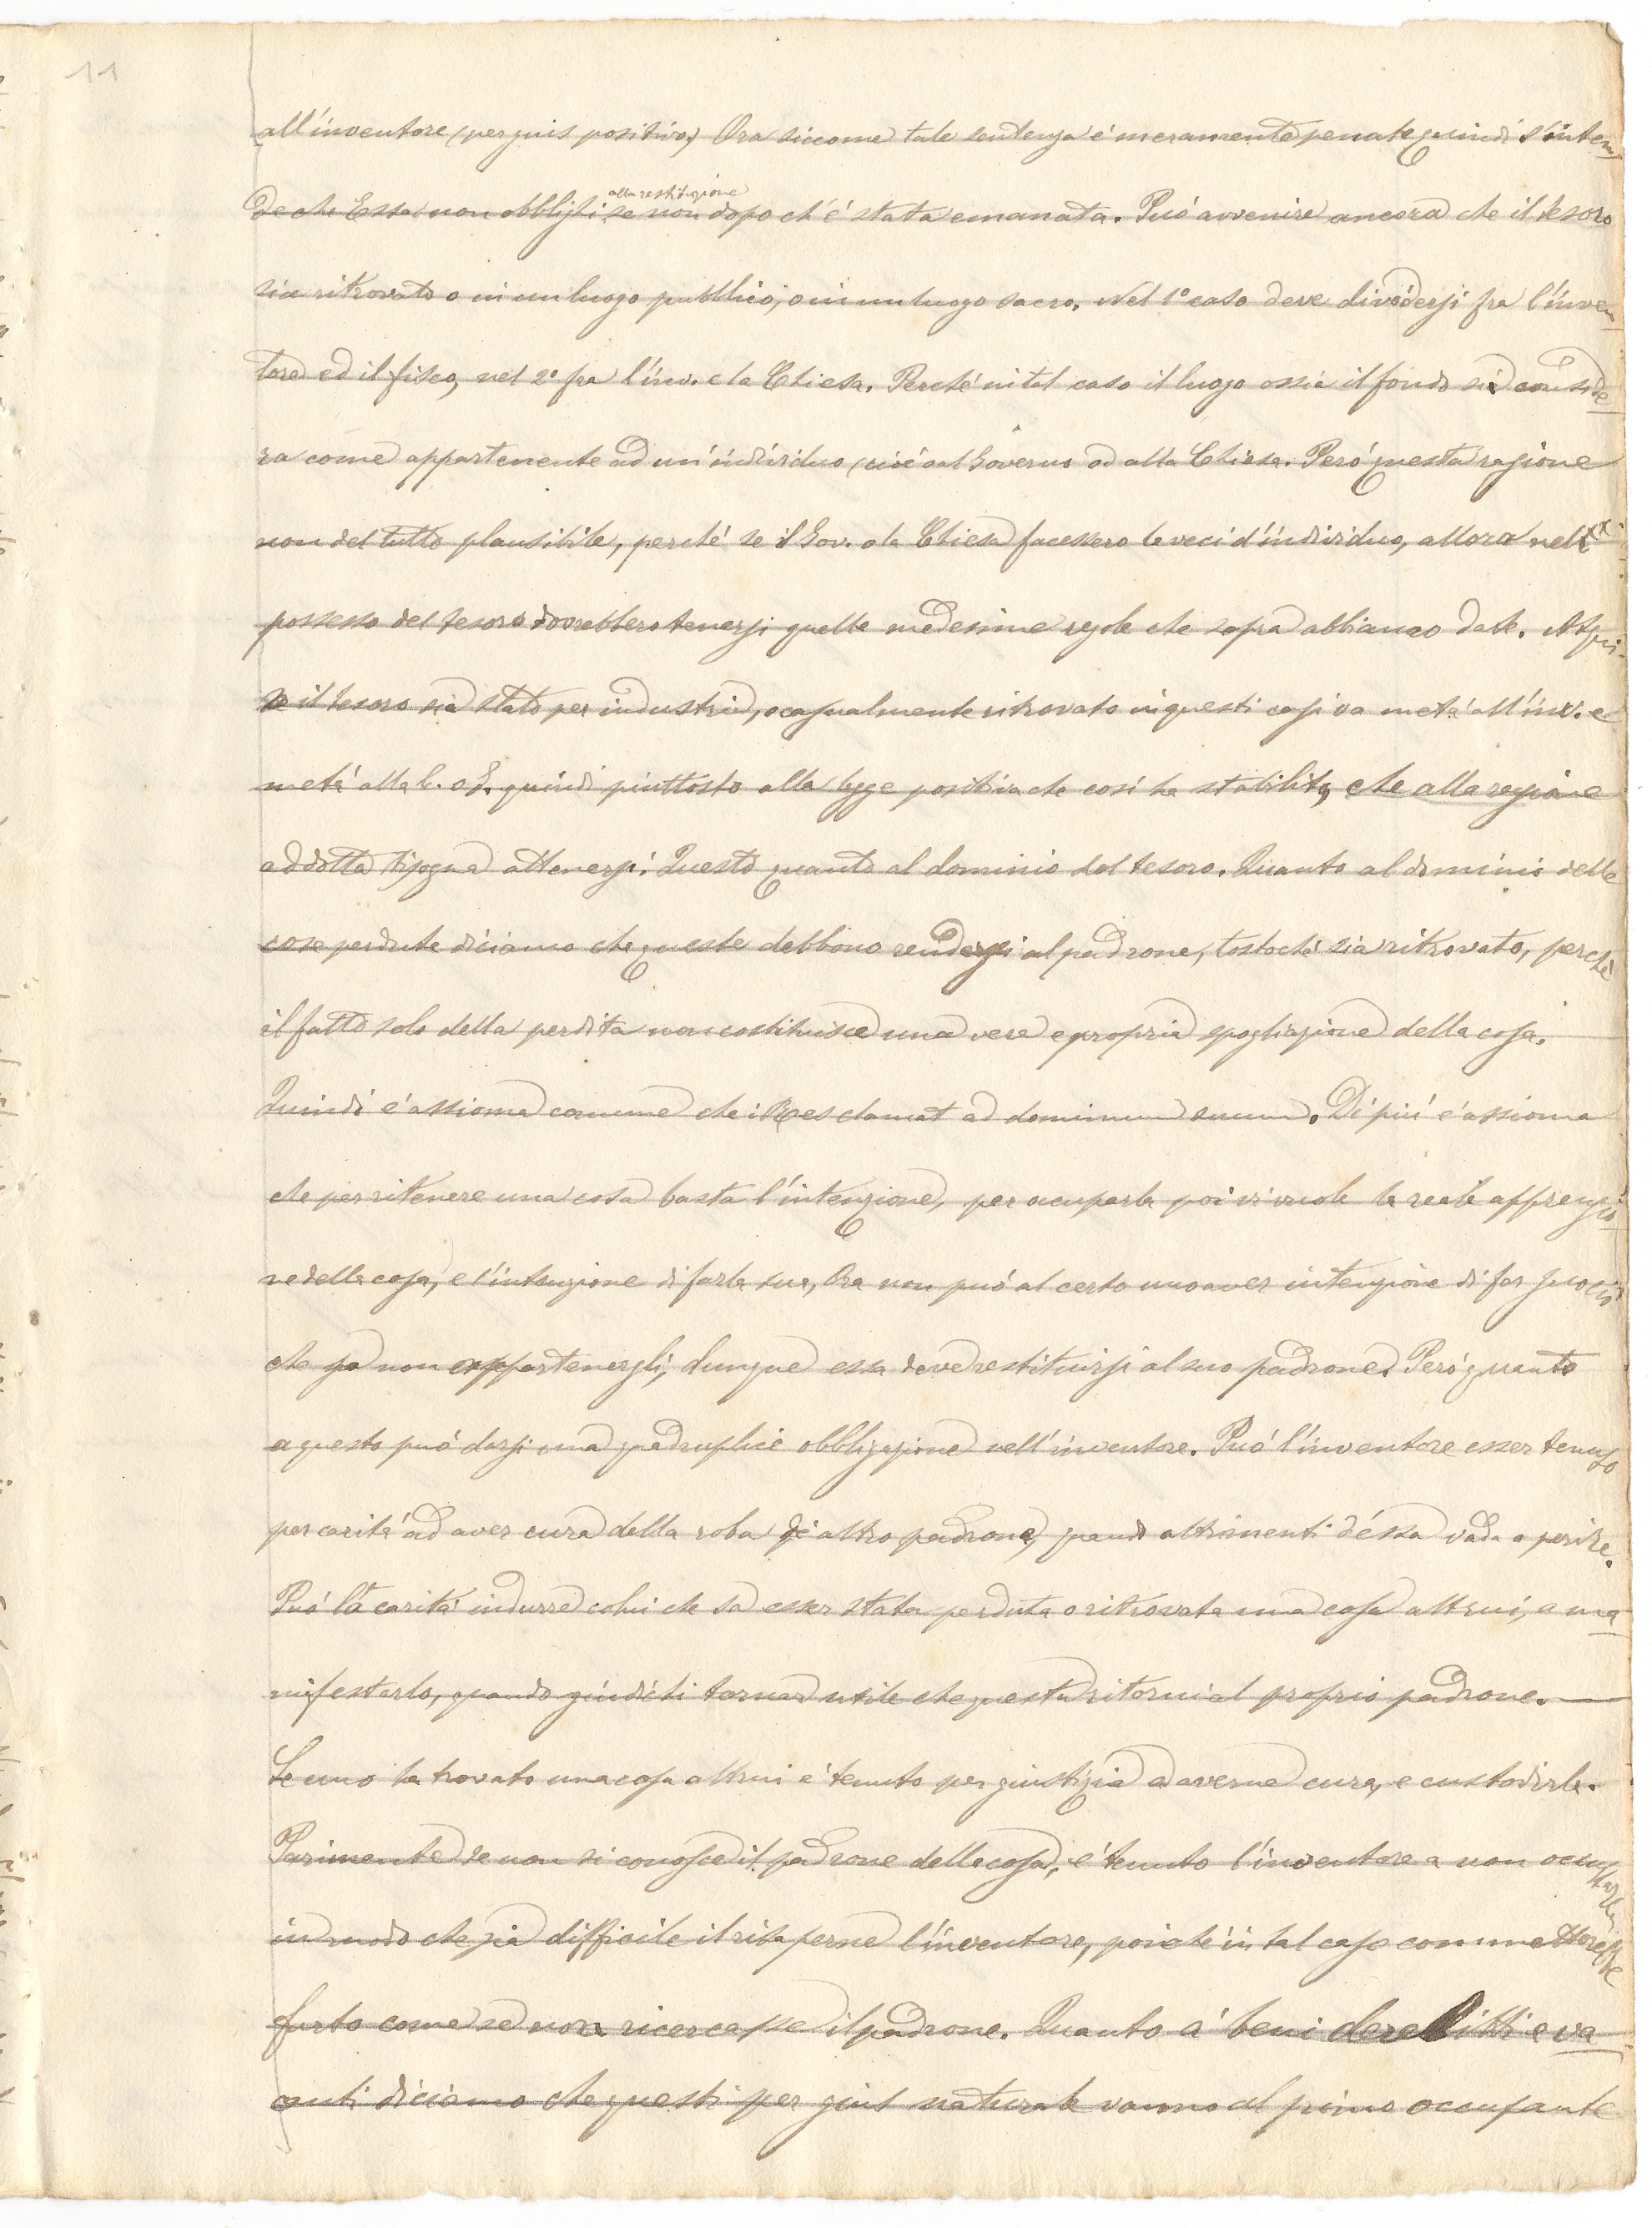 11
all'inventore (per guis positivo) Ora siccome tale sentenza è meramente penale quindi s'inten
de che Essa non obblighi se non alla restituzione dopo ch'è stata emanata. Può avvenire ancora che il tesoro
sia ritrovato o in un luogo pubblico, o in un luogo sacro. Nel 1° caso deve dividersi fra l'inven
tore ed il fisco, nel 2° fra l'inv. e la Chiesa. Perché in tal caso il luogo ossia il fondo si conside
ra come appartenente ad un'individuo (cioè o al Governo od alla Chiesa. Però questa ragione
non del tutto plausibile, perché se il Gov. o la Chiesa facessero le veci d'individuo, allora nel
possesso del tesoro dovrebbero tenersi quelle medesime regole che sopra abbiamo date. Atqui
se il tesoro sia stato per industria, o casualmente ritrovato in questi casi va metà all'inv. e
metà alla C. o G. quindi piuttosto alla legge positiva che così ha stabilito, che alla ragione
addotta bisogna attenersi. Questo quanto al dominio del tesoro. Quanto al dominio delle
cose perdute diciamo che queste debbono rendersi al padrone, tostoché sia ritrovato, perché
il fatto solo della perdita non costituisce una vera e propria spogliazione della cosa.
Quindi è assioma comune che: Res clamat ad dominum suum. Di più è assioma
che per ritenere una cosa basta l'intenzione, per ocuparla poi vi vuole la reale apprensio
ne della cosa, e l'intenzione di farla sua, Ora non può al certo uno aver intenzione di far suo ciò
che sa non appartenergli; dunque essa deve restituirsi al suo padrone. Però quanto
a questo può darsi una quadruplice obbligazione nell'inventore. Può l'inventore esser tenuto
per carità ad aver cura della roba di altro padrone, quando altrimenti d'essa vada a perire.
Può la carità indurre colui che sa esser stata perduta o ritrovata una cosa altrui, a ma
nifestarlo, quando giudichi tornar utile che questa ritorni al proprio padrone.
Se uno ha trovato una cosa altrui è tenuto per giustizia ad averne cura, e custodirla.
Parimente se non si conosce il padrone della cosa, è tenuto l'inventore a non occultarla
in modo che sia difficile il risaperne l'inventore, poiché in tal caso commetterebbe
furto come se non ricercasse il padrone. Quanto a' beni derelitti e va
canti diciamo che questi per gius naturale vanno al primo occupante